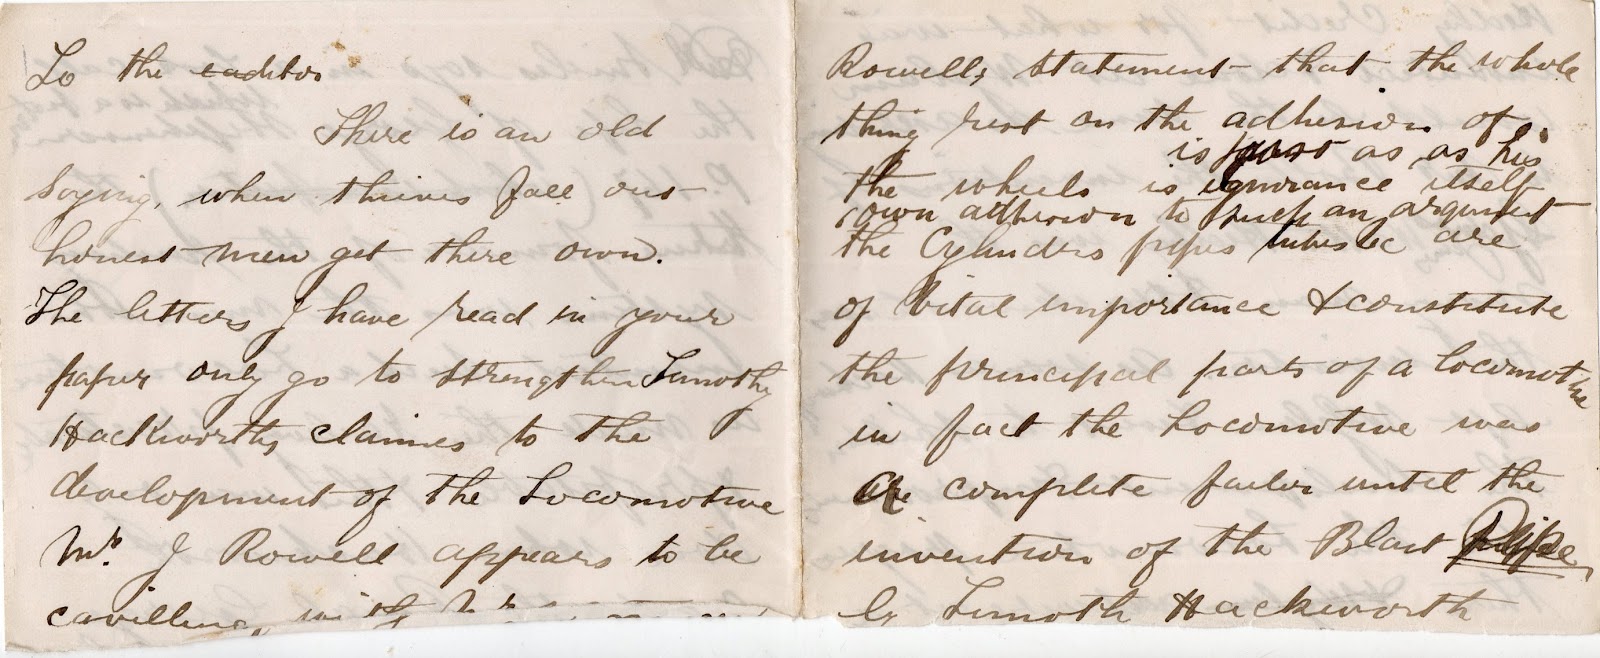 To the eaditor
There is an old
Saying, when thieves fall out
honest men get there own.
The letters I have read in your
paper only go to strengthen Timothy
Hackworths claimes to the
development of the Locomotive
Mr. J Rowell appears to be
cavilling with Mr
Rowells statement that the whole
thing rest on the adhesion of
is just as as his
the wheels is ignorance itself
own adhesion to such an argument
the Cylinders pipes tubes &c are
of Vital importance & constitute
the principal parts of a locomotive
in fact the Locomotive was
a complete failor until the
invention of the Blast Pipe
by Timothy Hackworth